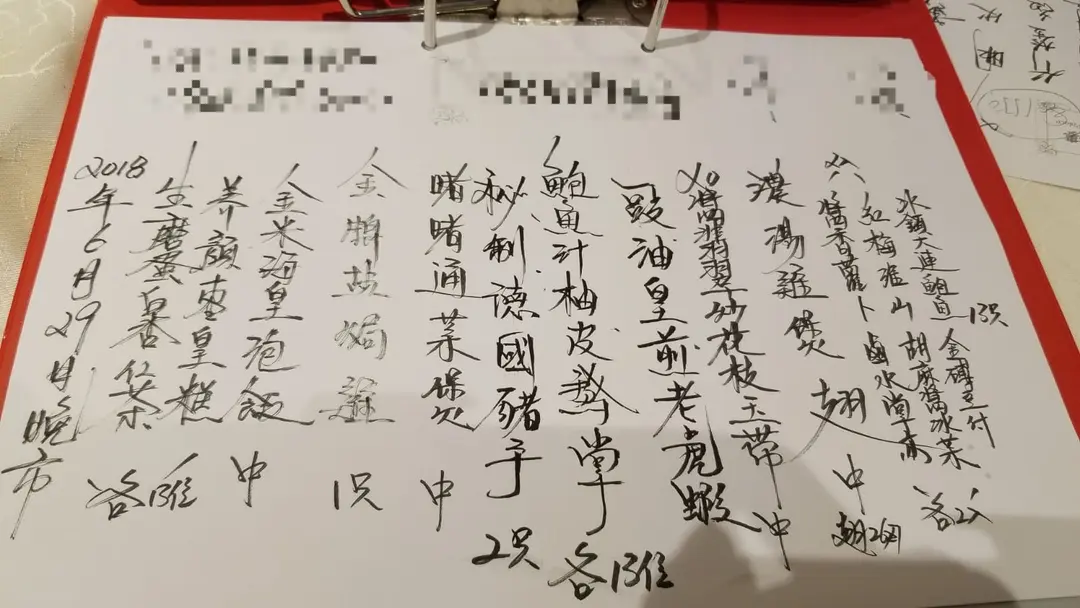 冰鎮大連鮑魚 13只 金磚豆付
紅梅淮山 胡麻醬冰菜 各2
醬香蘿卜 鹵水掌
濃湯雞煲翅 中 翅26両
XO醬翡翠炒花枝玉帶 中
豉油皇煎老虎蝦
鮑魚汁柚皮鵝掌 各13位
秘制德國豬手 2只
啫啫通菜煲 中
金牌盐焗雞 1只
金米海皇泡飯 中
养顏枣皇糕
生磨蛋白杏仁茶 各13位
2018年6月29日 晚市